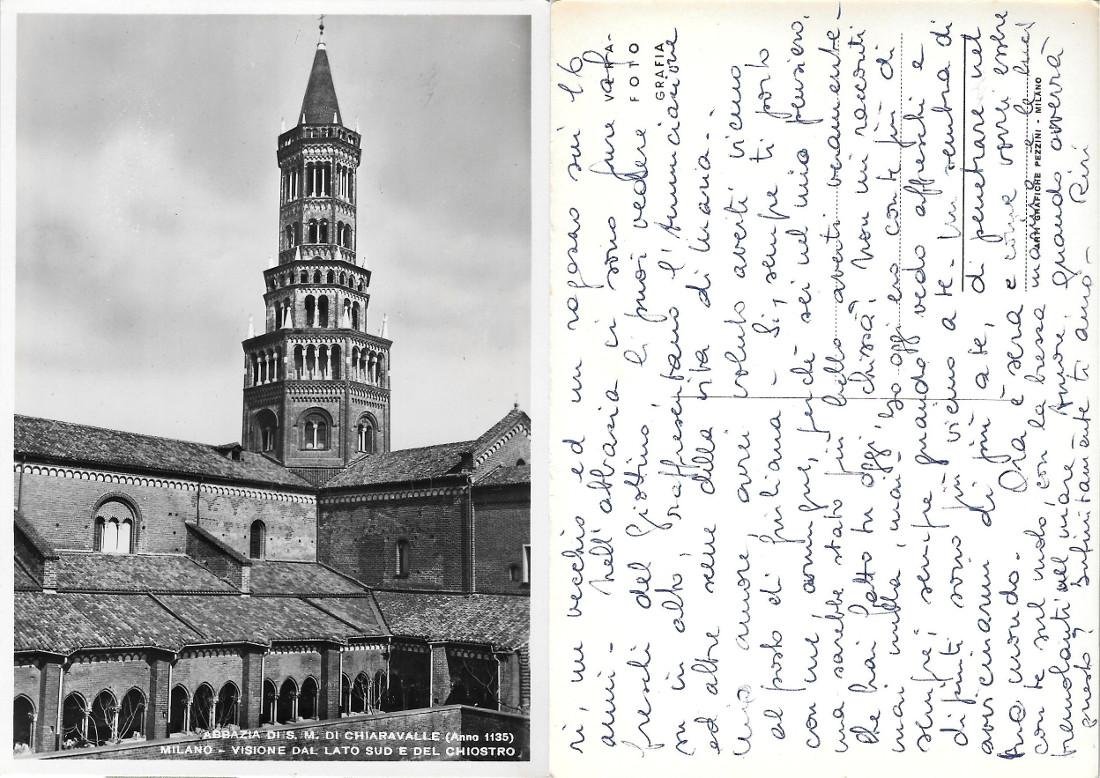 ABBAZIA DI S. M. DI CHIARAVALLE (Anno 1135)
MILANO - VISIONE DAL LATO SUD E DEL CHIOSTRO
ri, un vecchio ed un ragazzo sui 16
anni - Nell'abbazia vi sono pure af-
freschi del Giottino, li puoi vedere
su in alto, rappresentano l'Annunciazione
ed altre scene della vita di Maria..
Mio amore, avrei voluto averti vicino
al posto di Giuliana - Si, sempre ti porto
con me, comunque, perchè sei nel mio pensiero,
ma sarebbe stato più bello averti veramente -
che hai fatto tu oggi, chissà? Non mi racconti
mai nulla, mai! Io oggi ero con te più di
sempre, sempre quando vedo affreschi e
dipinti sono più vicino a te - Mi sembra di
avvicinarmi di più a te, di penetrare nel
tuo mondo. Ora è sera e come vorrei essere
con te sul molo, con la brezza marina e le luci
tremolanti sul mare. Amore quando avverrà
questo? Infinitamente ti amo -
VERA
FOTO
GRAFIA
ARTI GRAFICHE PEZZINI - MILANO